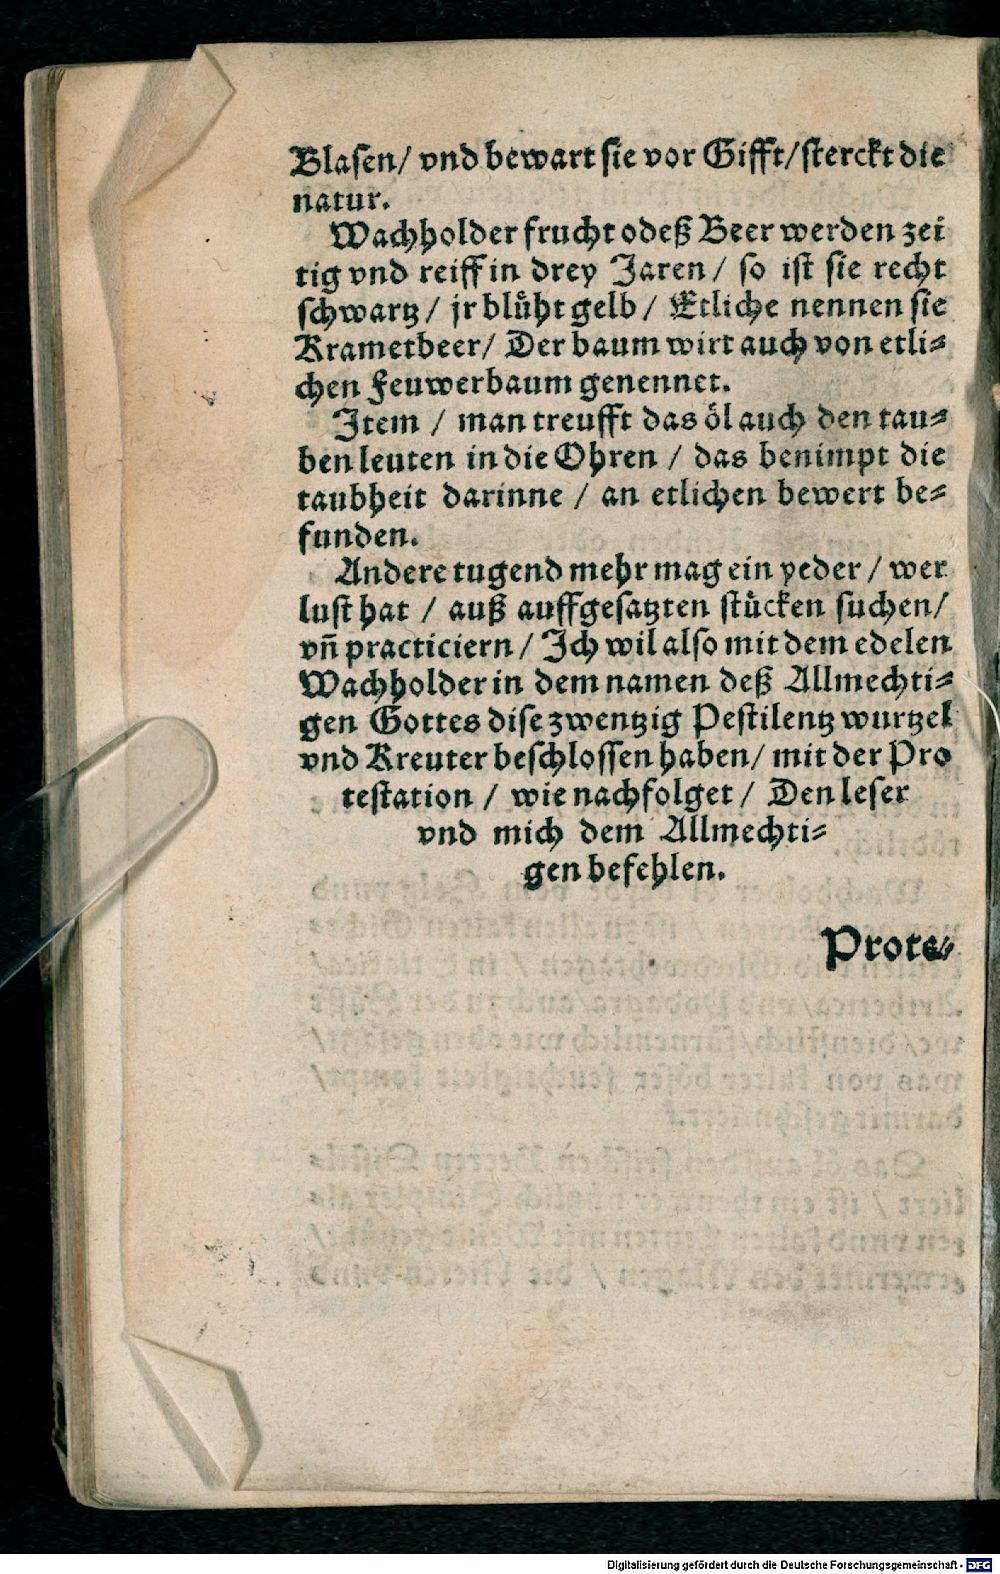 Blasen/ vnd bewart sie vor Gifft/ sterckt die
natur.
Wachholder frucht odeß Beer werden zei
tig vnd reiff in drey Jaren / so ist sie recht
schwartz / jr blüht gelb / Etliche nennen sie
Krametbeer/ Der baum wirt auch von etli⸗
chen Feuwerbaum genennet.
Item / man treufft das öl auch den tau⸗
ben leuten in die Ohren / das benimpt die
taubheit darinne / an etlichen bewert be⸗
funden.
Andere tugend mehr mag ein yeder / wer
lust hat / auß auffgesatzten stücken suchen/
vñ practiciern / Ich wil also mit dem edelen
Wachholder in dem namen deß Allmechti⸗
gen Gottes dise zwentzig Pestilentz wurtzel
vnd Kreuter beschlossen haben/ mit der Pro
testation / wie nachfolget / Den leser
vnd mich dem Allmechti⸗
gen befehlen.
Prote⸗
Digitalisierung gefördert durch die Deutsche Forschungsgemeinschaft - DFG